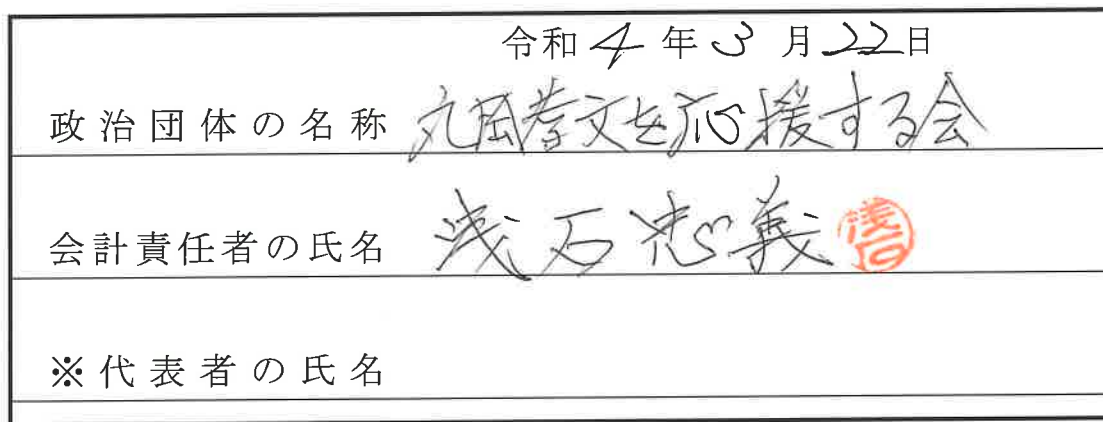 令和4年3月22日
政治団体の名称 丸岡孝文を応援する会
会計責任者の氏名 浅石忠義 浅石
※代表者の氏名